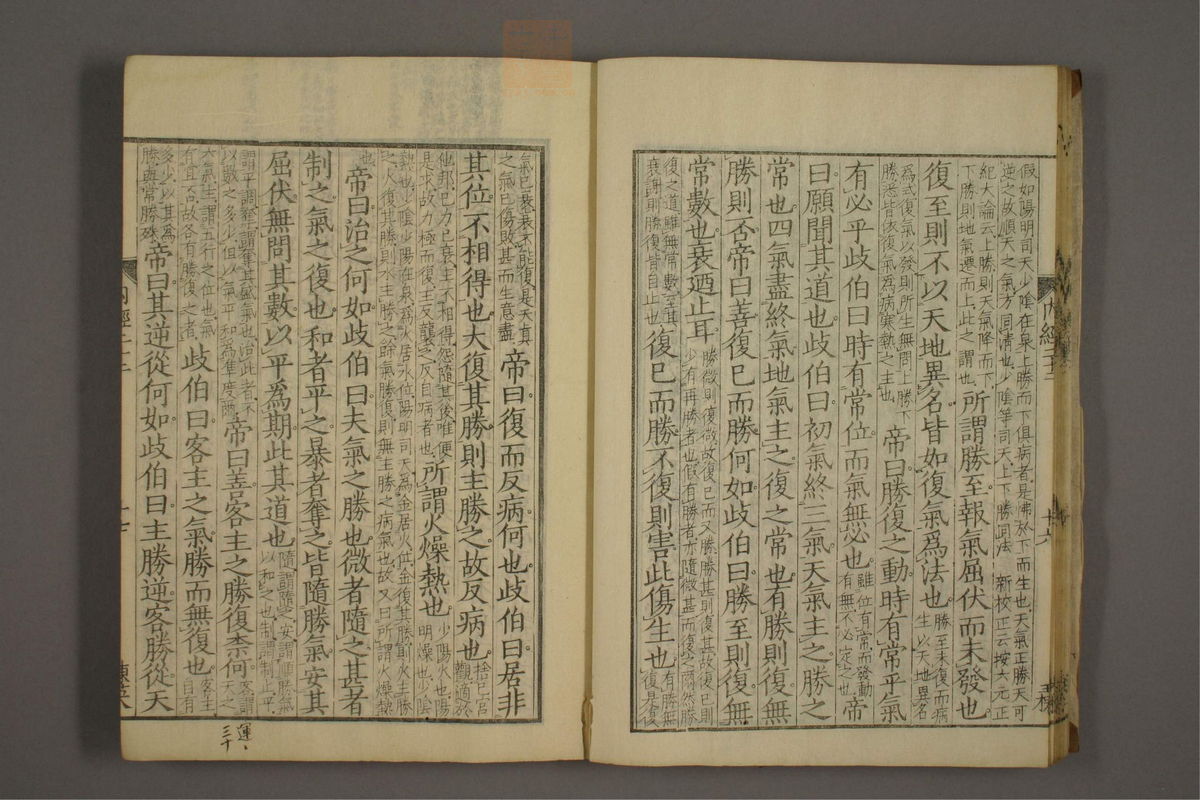 假如陽明司天少陰在泉上勝而下俱病者是怫於下而生也天氣正勝天可
逆之故順天之氣方同清也少陰等司天上下勝同法　新校正云按大元正
紀大論云上勝則天氣降而下
下勝則地氣遷而上此之謂也
所謂勝至報氣屈伏而未發也
復至則不以天地異名皆如復氣爲法也
勝至未復而病
生以天地異名
為式復氣以發則所生無問上勝下
勝悉皆依復氣為病寒熱之主也
帝曰勝復之動時有常乎氣
有必乎歧伯曰時有常位而氣無必也
雖位有常而發動
有無不必定之也
帝
曰願聞其道也歧伯曰初氣終三氣天氣主之勝之
常也四氣盡終氣地氣主之復之常也有勝則復無
勝則否帝曰善復已而勝何如歧伯曰勝至則復無
常數也衰迺止耳
勝微則復微故復已而又勝勝甚則復甚故復已則
少有再勝者也假有勝者亦隨微甚而復之爾然勝
復之道雖無常數至其
衰謝則勝復皆自止也
復已而勝不復則害此傷生也
有勝無
復是復
内經二十二
十六
氣已衰衰不能復是天真
之氣已傷敗甚而生意盡
帝曰復而反病何也歧伯曰居非
其位不相得也大復其勝則主勝之故反病也
捨已宮
觀適於
他邦已力已衰主不相得怨隨其後唯便
是求故力極而復主反襲之反自病者也
所謂火燥熱也
少陽火也陽
明燥也少陰
熱也少陰少陽在泉為火居水位陽明司天為金居火位金復其勝則火主勝
之火復其勝則水主勝之餘氣勝復則無主勝之病氣也故又曰所謂火燥熱
也
帝曰治之何如歧伯曰夫氣之勝也微者隨之甚者
制之氣之復也和者平之暴者奪之皆隨勝氣安其
屈伏無問其數以平爲期此其道也
隨謂隨之安謂順勝氣
以和之也制謂制止平
謂平調奪謂奪其盛氣也治此者不
以數之多少但以氣平和為準度爾
帝曰善客主之勝復柰何
客謂
天之
六氣主謂五行之位也氣
有宜不故各有勝復之者
歧伯曰客主之氣勝而無復也
客主
自有
多少以其為
勝與常勝殊
帝曰其逆從何如歧伯曰主勝逆客勝從天
運、
三十